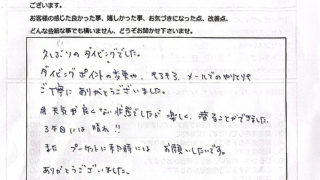 ございます。
お客様の感じた良かった事、嬉しかった事、お気づきになった点、改善点、
どんな些細な事でも構いません、どうぞお聞かせ下さいませ。
久しぶりのダイビングでした。
ダイビングポイントの
メールでのやりとり
ありがとうございました。
天気が良くない状態でしたが 楽しく、潜ることができました。
3年目には 晴れ!!
また プーケットに来た時には お願いしたいです。
ありがとうございました。